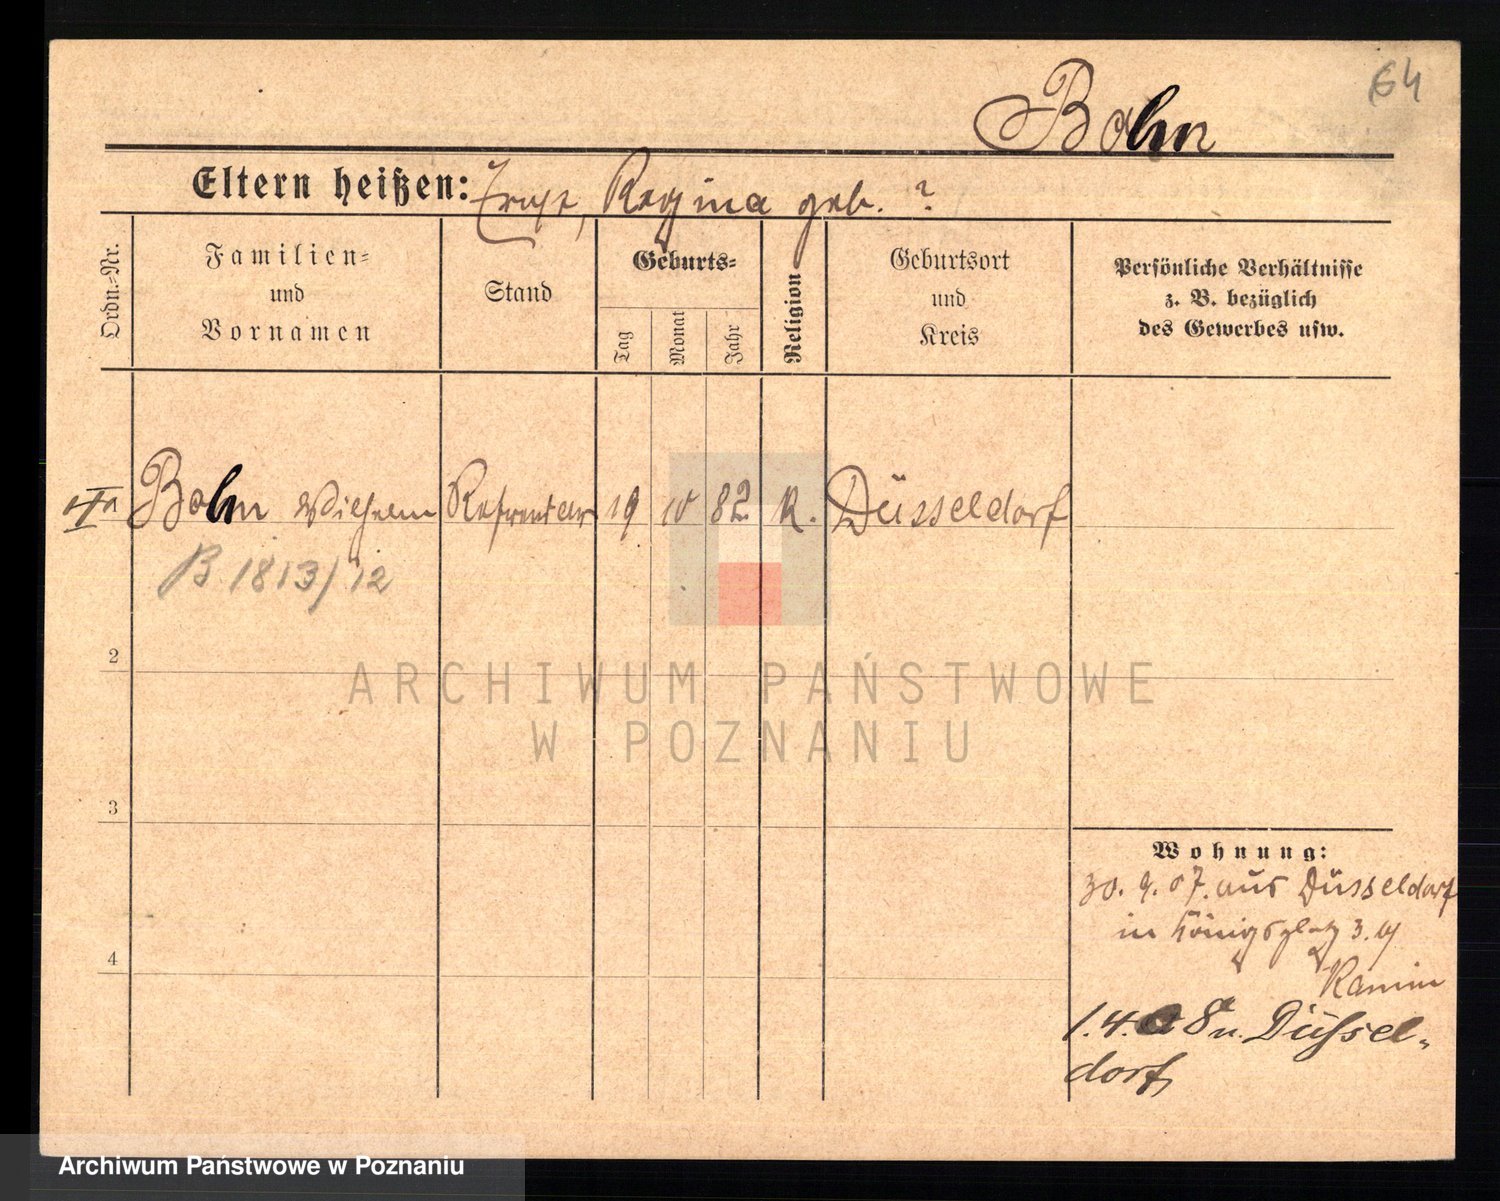 64
Bohn
Eltern heißen: Ernst, Regina geb. ?
Ordn.-Nr.
Familien=
und
Vornamen
Stand
Geburts=
Tag
Monat
Jahr
Religion
Geburtsort
und
Kreis
Persönliche Verhältnisse
z. B. bezüglich
des Gewerbes usw.
Bohn Wilhelm Referendar 19 10 82 K. Düsseldorf
B 1813/12
2
3
4
Wohnung:
30. 9. 07. aus Düsseldorf
in Königsplatz 3.
1.4. 8 n. Düssel-
dorf
ARCHIWUM PAŃSTWOWE
W POZNANIU
Archiwum Państwowe w Poznaniu